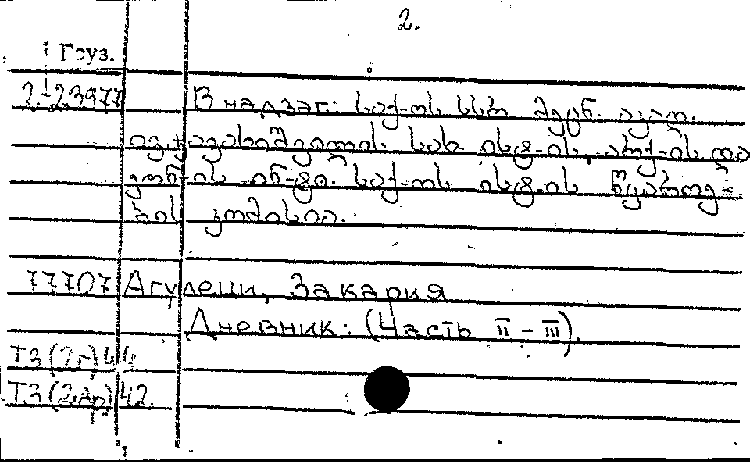 2.
Груз.
2.23977 В надзаг: საქ-ოს სსრ მეცნ. აკად.
ივ. ჯავახიშვილის სახ. ისტ-ის, არქ-ის და
ეთნ-ის ინ-ტი. საქ-ოს ისტ-ის წყაროე-
ბის კომისია.
77707 Агулеци, Закария
Дневник: (Часть II - III).
ТЗ (2г) 44
ТЗ (2Ар) 42.